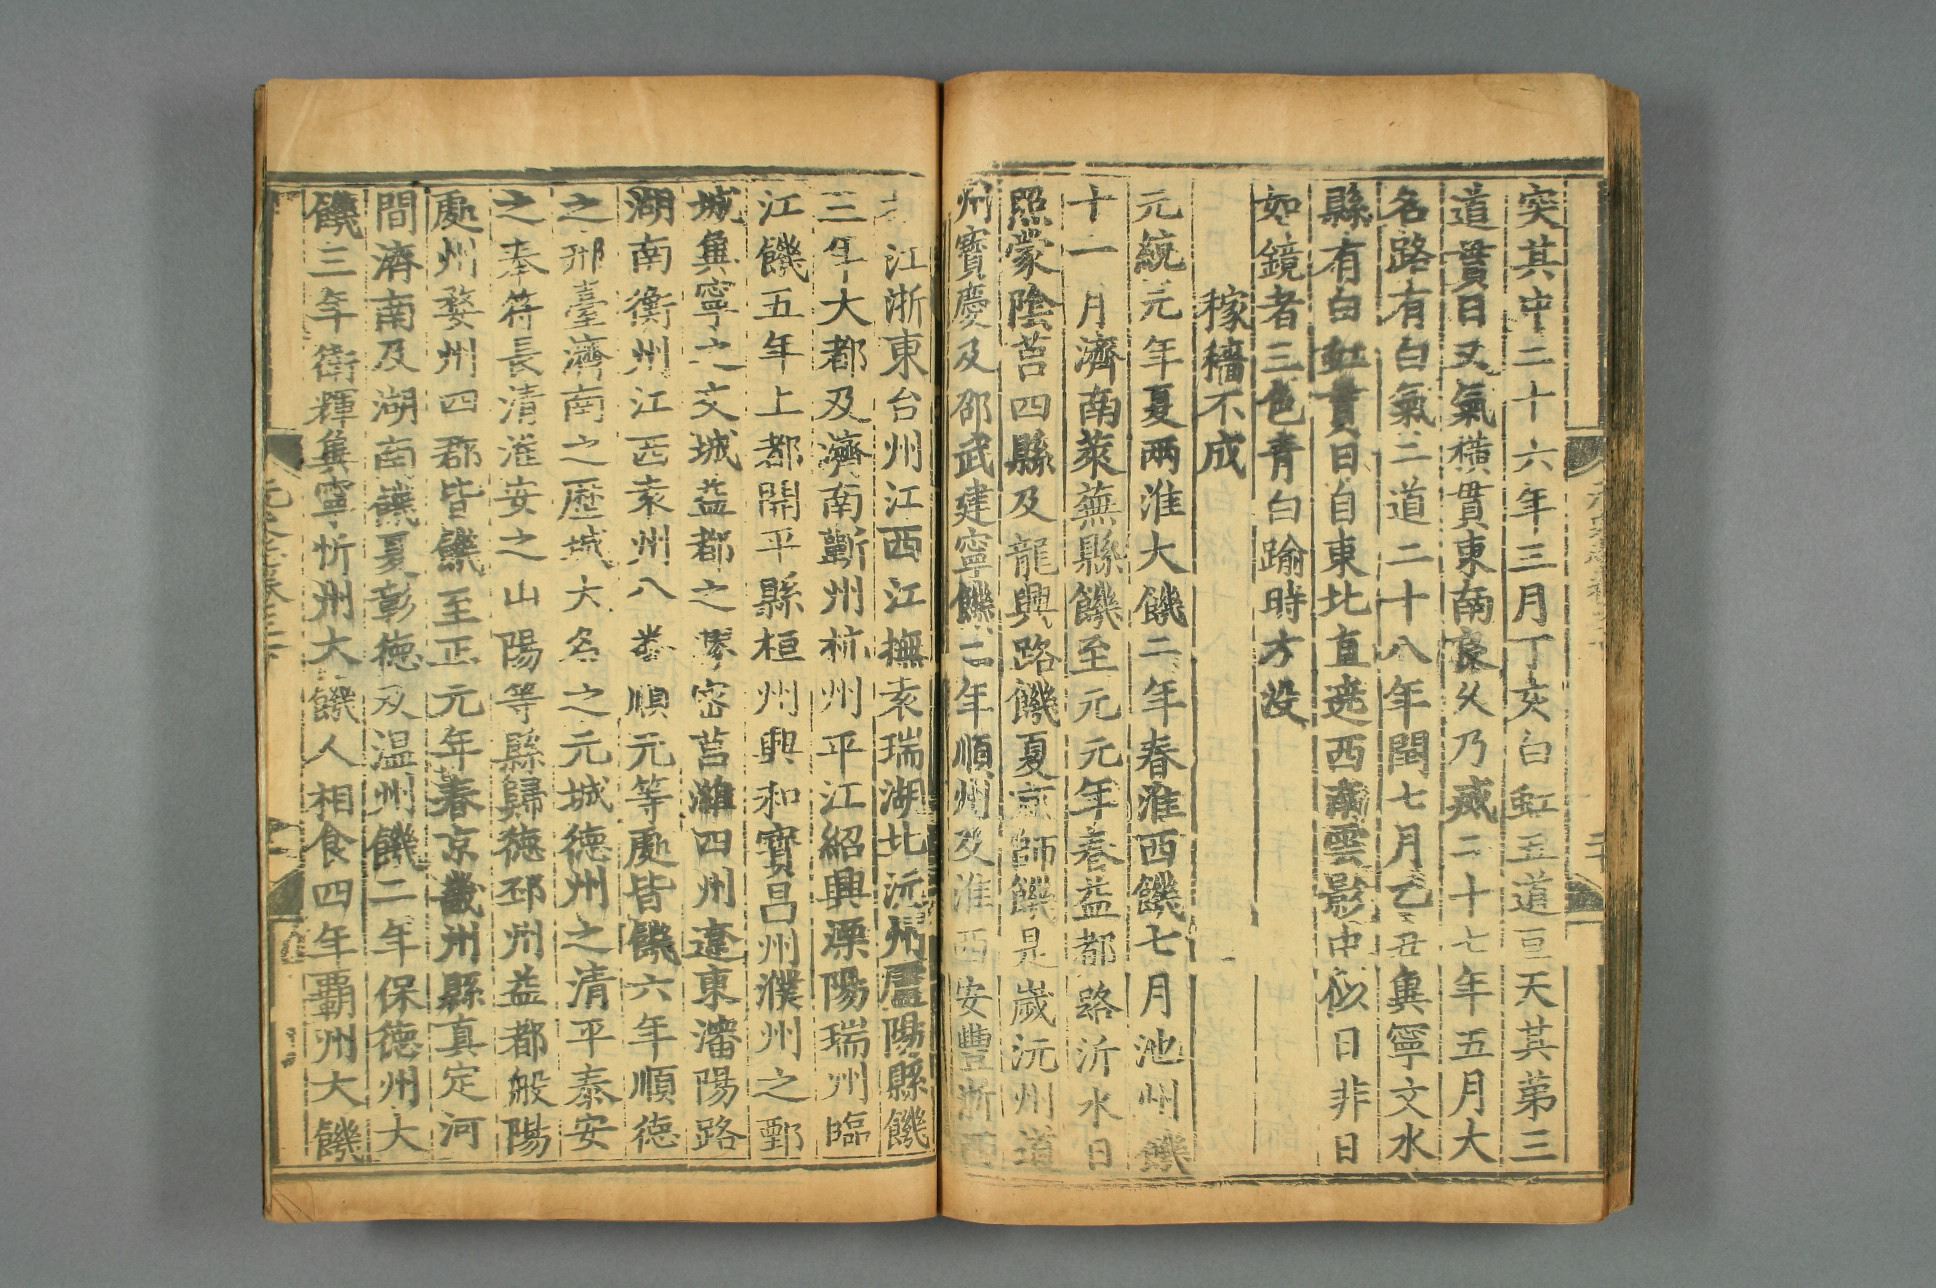 突其中二十六年三月丁亥白虹五道亘天其第三
道貫日又氣橫貫東南良久乃滅二十七年五月大
名路有白氣二道二十八年閏七月乙丑兾寧文水
縣有白虹貫日自東北直遶西南雲影中似日非日
如鏡者三色青白踰時方没
稼穡不成
元統元年夏兩淮大饑二年春淮西饑七月池州饑
十一月濟南萊蕪縣饑至元元年春益都路沂水日
照蒙陰莒四縣及龍興路饑夏京師饑是歲沅州道
州寶慶及邵武建寧饑二年順州及淮西安豐浙西
江浙東台州江西江撫袁瑞湖北沅州盧陽縣饑
三年大都及濟南蘄州杭州平江紹興溧陽瑞州臨
江饑五年上都開平縣桓州興和寶昌州濮州之鄄
城兾寧之文城益都之膠密莒濰四州遼東瀋陽路
湖南衡州江西袁州八番順元等處皆饑六年順德
之邢臺濟南之歷城大名之元城德州之清平泰安
之奉符長清淮安之山陽等縣歸德邳州益都般陽
處州婺州四郡皆饑至正元年春京畿州縣真定河
間濟南及湖南饑夏彰德及温州饑二年保德州大
饑三年衛輝兾寧忻州大饑人相食四年霸州大饑